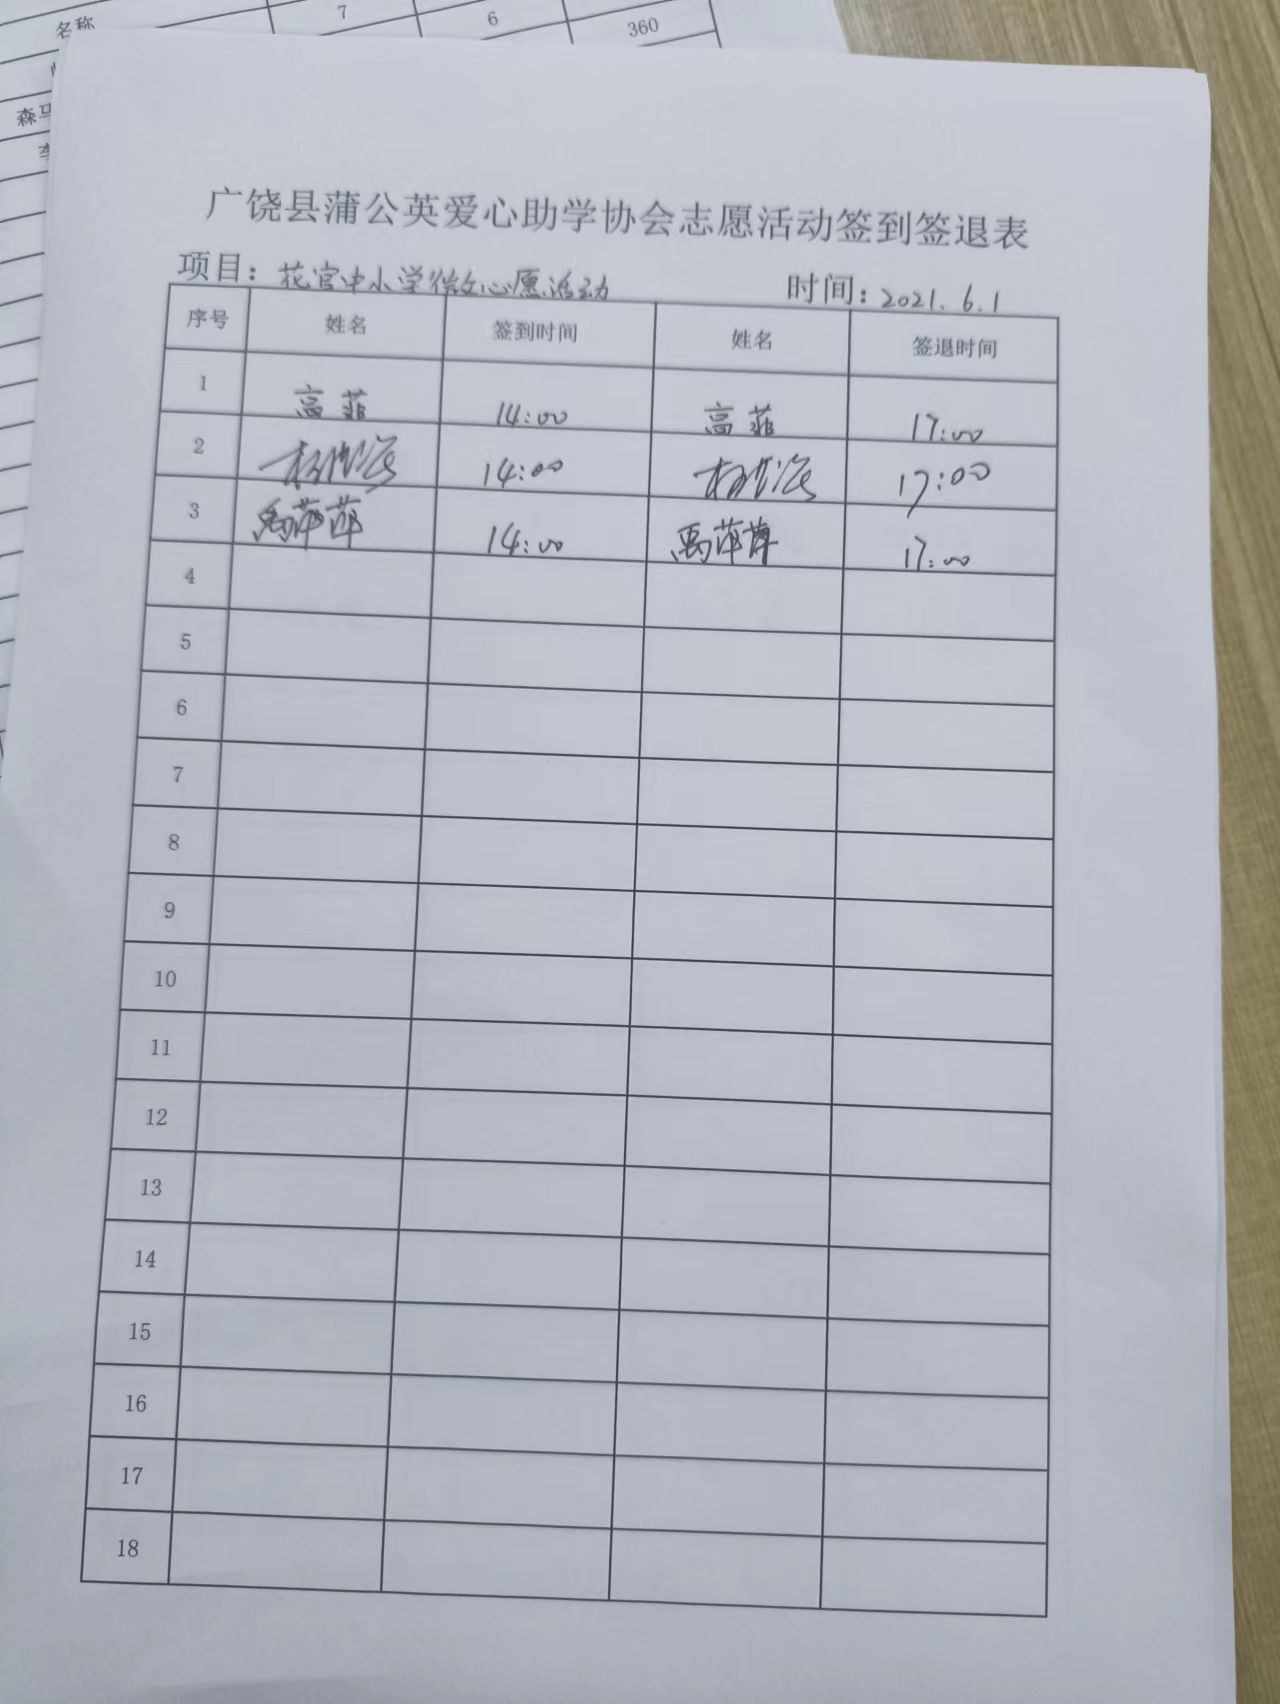 名称 7 6 360
森马
广饶县蒲公英爱心助学协会志愿活动签到签退表
项目：花官中小学微心愿活动 时间：2021.6.1
序号 姓名 签到时间 姓名 签退时间
1 高菲 14:00 高菲 17:00
2 14:00 17:00
3 禹萍萍 14:00 禹萍萍 17:00
4
5
6
7
8
9
10
11
12
13
14
15
16
17
18